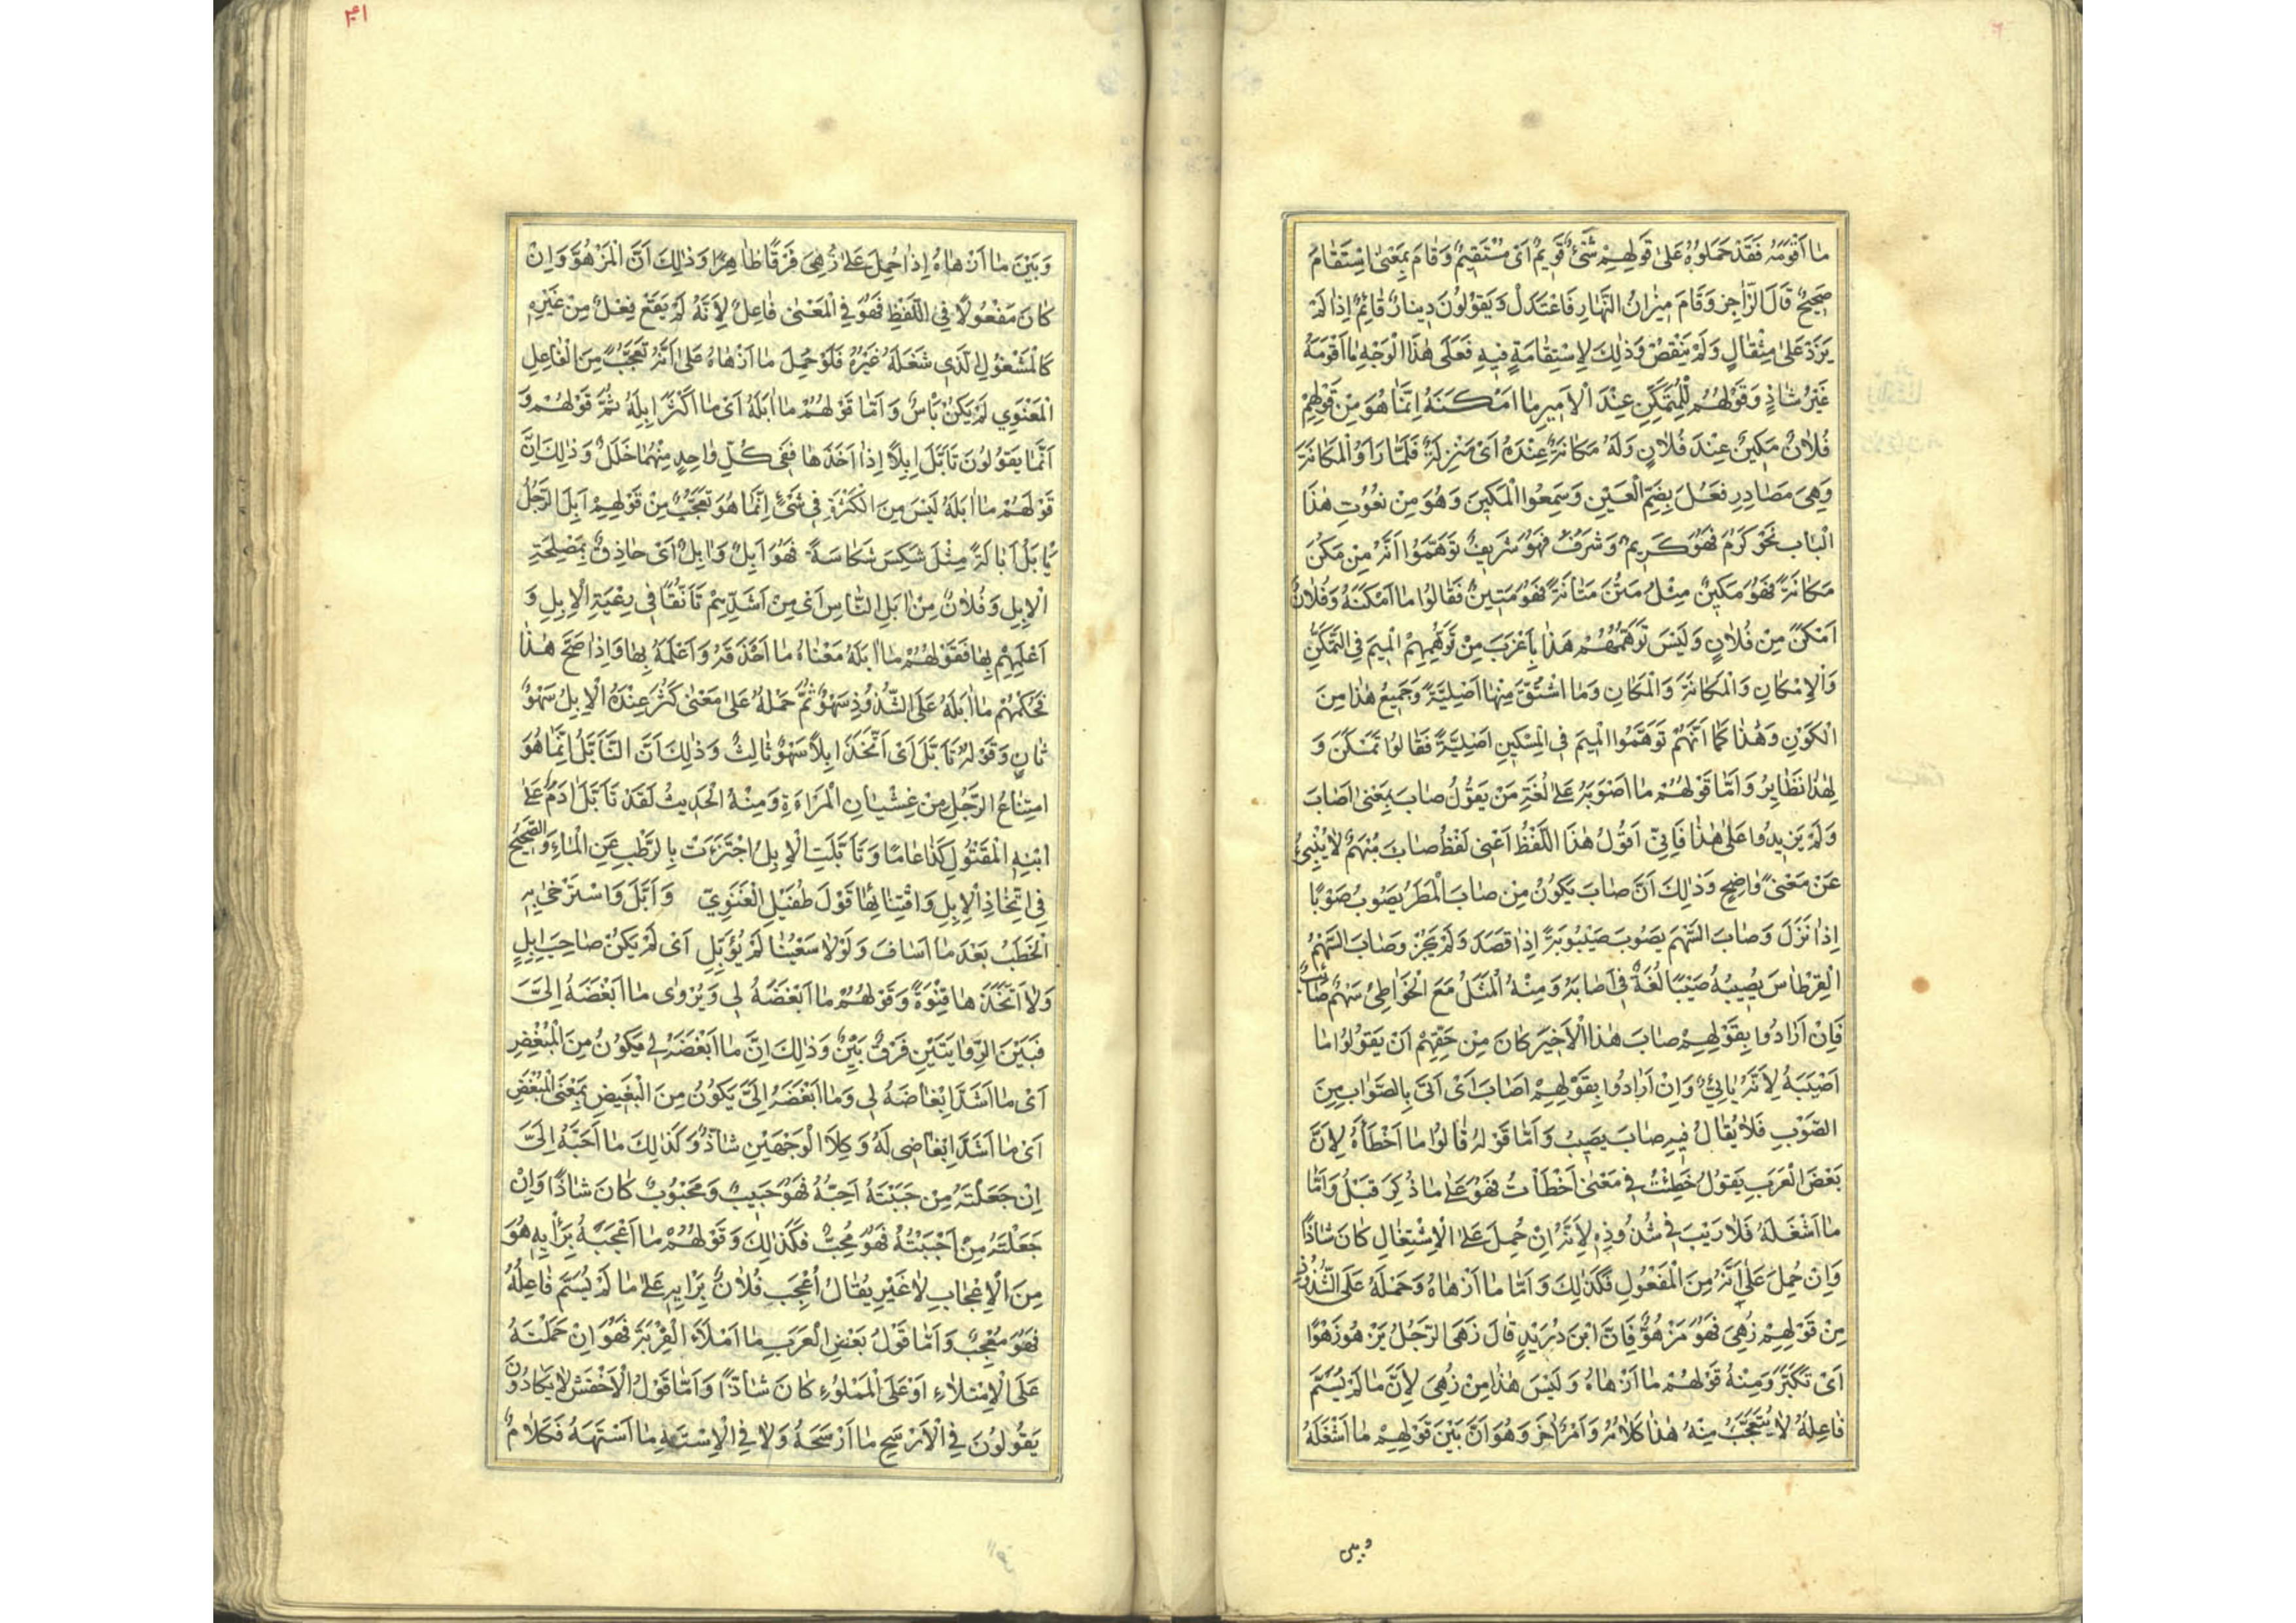 مَا أَقْوَمَهُ فَقَدْ حَمَلُوهُ عَلَى قَوْلِهِمْ شَيْءٌ قَوِيمٌ أَيْ مُسْتَقِيمٌ وَقَامَ بِمَعْنَى اسْتَقَامَ
صَحِيحٌ قَالَ الرَّاجِزُ وَقَامَ مِيزَانُ النَّهَارِ فَاعْتَدَلْ وَيَقُولُونَ دِينَارٌ قَائِمٌ إِذَا لَمْ
يَزِدْ عَلَى مِثْقَالٍ وَلَمْ يَنْقُصْ وَذٰلِكَ لِاسْتِقَامَةٍ فِيهِ فَعَلَى هٰذَا الْوَجْهِ مَا أَقْوَمَهُ
غَيْرُ شَاذٍّ وَقَوْلُهُمْ لِلْمُتَمَكِّنِ عِنْدَ الْأَمِيرِ مَا أَمْكَنَهُ إِنَّمَا هُوَ مِنْ قَوْلِهِمْ
فُلَانٌ مَكِينٌ عِنْدَ فُلَانٍ وَلَهُ مَكَانَةٌ عِنْدَهُ أَيْ مَنْزِلَةٌ فَلَمَّا رَأَوُا الْمَكَانَةَ
وَهِيَ مَصَادِرِ فَعُلَ بِضَمِّ الْعَيْنِ وَسَمِعُوا الْمَكِينَ وَهُوَ مِنْ نُعُوتِ هٰذَا
الْبَابِ نَحْوُ كَرُمَ فَهُوَ كَرِيمٌ وَشَرُفَ فَهُوَ شَرِيفٌ تَوَهَّمُوا أَنَّهُ مِنْ مَكُنَ
مَكَانَةً فَهُوَ مَكِينٌ مِثْلُ مَتُنَ مَتَانَةً فَهُوَ مَتِينٌ فَقَالُوا مَا أَمْكَنَهُ وَفُلَانٌ
أَمْكَنُ مِنْ فُلَانٍ وَلَيْسَ تَوَهُّمُهُمْ هٰذَا بِأَغْرَبَ مِنْ تَوَهُّمِهِمْ الْمِيمَ فِي التَّمَكُّنِ
وَالْإِمْكَانِ وَالْمَكَانَةَ وَالْمَكَانِ وَمَا اشْتُقَّ مِنْهَا أَصْلِيَّةً وَجَمِيعُ هٰذَا مِنَ
الْكَوْنِ وَهٰذَا كَمَا أَنَّهُمْ تَوَهَّمُوا الْمِيمَ فِي الْمِسْكِينِ أَصْلِيَّةً فَقَالُوا تَمَسْكَنَ وَ
لِهٰذَا نَظَايِرُ وَأَمَّا قَوْلُهُمْ مَا أَصْوَبَهُ عَلَى لُغَةِ مَنْ يَقُولُ صَابَ بِمَعْنَى أَصَابَ
وَلَمْ يَزِيدُوا عَلَى هٰذَا فَإِنِّي أَقُولُ هٰذَا اللَّفْظُ أَعْنِي لَفْظَ صَابَ مُبْهَمٌ لَا يُنْبِئُ
عَنْ مَعْنًى وَاضِحٍ وَذٰلِكَ أَنَّ صَابَ يَكُونُ مِنْ صَابَ الْمَطَرُ يَصُوبُ صَوْبًا
إِذَا نَزَلَ وَصَابَ السَّهْمُ يَصُوبُ صَيْبُوبَةً إِذَا قَصَدَ وَلَمْ يَجُزْ وَصَابَ السَّهْمُ
الْقِرْطَاسَ يُصِيبُهُ صَيْبًا لُغَةٌ فِي أَصَابَهُ وَمِنْهُ الْمَثَلُ مَعَ الْخَوَاطِئِ سَهْمٌ صَائِبٌ
فَإِنْ أَرَادُوا بِقَوْلِهِمْ صَابَ هٰذَا الْأَخِيرَ كَانَ مِنْ حَقِّهِمْ أَنْ يَقُولُوا مَا
أَصْيَبَهُ لِأَنَّهُ يَائِيٌّ وَإِنْ أَرَادُوا بِقَوْلِهِمْ أَصَابَ أَيْ أَتَى بِالصَّوَابِ مِنَ
الصَّوْبِ فَلَا يُقَالُ فِيهِ صَابَ يَصِيبُ وَأَمَّا قَوْلُهُ قَالُوا مَا أَخْطَأَهُ لِأَنَّ
بَعْضَ الْعَرَبِ يَقُولُ خَطِئْتُ فِي مَعْنَى أَخْطَأْتُ فَهُوَ عَلَى مَا ذُكِرَ قَبْلُ وَأَمَّا
مَا أَشْغَلَهُ فَلَا رَيْبَ فِي شُذُوذِهِ لِأَنَّهُ إِنْ حُمِلَ عَلَى الْاِشْتِغَالِ كَانَ شَاذًّا
وَإِنْ حُمِلَ عَلَى أَنَّهُ مِنَ الْمَفْعُولِ فَكَذٰلِكَ وَأَمَّا مَا أَزْهَاهُ وَحَمْلُهُ عَلَى الشُّذُوذِ
مِنْ قَوْلِهِمْ زُهِيَ فَهُوَ مَزْهُوٌّ فَإِنَّ ابْنَ دُرَيْدٍ قَالَ زَهَى الرَّجُلُ يَزْهُو زَهْوًا
أَيْ تَكَبَّرَ وَمِنْهُ قَوْلُهُمْ مَا أَزْهَاهُ وَلَيْسَ هٰذَا مِنْ زُهِيَ لِأَنَّ مَا لَمْ يُسَمَّ
فَاعِلُهُ لَا يُتَعَجَّبُ مِنْهُ هٰذَا كَلَامُهُ وَأَمْرٌ آخَرُ وَهُوَ أَنَّ بَيْنَ قَوْلِهِمْ مَا أَشْغَلَهُ
وبين
وَبَيْنَ مَا أَزْهَاهُ إِذَا حُمِلَ عَلَى زُهِيَ فَرْقًا ظَاهِرًا وَذٰلِكَ أَنَّ الْمَزْهُوَّ وَإِنْ
كَانَ مَفْعُولًا فِي اللَّفْظِ فَهُوَ فِي الْمَعْنَى فَاعِلٌ لِأَنَّهُ لَمْ يَقَعْ فِعْلٌ مِنْ غَيْرِهِ
كَالْمَشْغُولِ الَّذِي شَغَلَهُ غَيْرُهُ فَلَوْ حُمِلَ مَا أَزْهَاهُ عَلَى أَنَّهُ تَعَجُّبٌ مِنَ الْفَاعِلِ
الْمَعْنَوِي لَمْ يَكُنْ بَأْسٌ وَأَمَّا قَوْلُهُمْ مَا أَبَلَهُ أَيْ مَا أَكْثَرَ إِبِلَهُ ثُمَّ قَوْلُهُمْ وَ
أَنَّمَا يَقُولُونَ تَأَبَّلَ إِبِلًا إِذَا أَخَذَهَا فَفِي كُلِّ وَاحِدٍ مِنْهُمَا خَلَلٌ وَذٰلِكَ إِنَّ
قَوْلَهُمْ مَا أَبَلَهُ لَيْسَ مِنَ الْكَثْرَةِ فِي شَيْءٍ إِنَّمَا هُوَ تَعَجُّبٌ مِنْ قَوْلِهِمْ أَبِلَ الرَّجُلُ
يَأْبَلُ أَبَالَةً مِثْلَ شَكِسَ شَكَاسَةً فَهُوَ أَبِلٌ وَآبِلٌ أَيْ حَاذِقٌ بِمَصْلِحَةِ
الْإِبِلِ وَفُلَانٌ مِنْ آبَلِ النَّاسِ أَيْ مِنْ أَشَدِّهِمْ تَأَنُّقًا فِي رِعْيَةِ الْإِبِلِ وَ
أَعْلَمِهِمْ بِهَا فَقَوْلُهُمْ مَا أَبَلَهُ مَعْنَاهُ مَا أَحْذَقَهُ وَأَعْلَمَهُ بِهَا وَإِذَا صَحَّ هٰذَا
فَحُكْمُهُمْ مَا أَبَلَهُ عَلَى الشُّذُوذِ سَهْوٌ ثُمَّ حَمْلُهُ عَلَى مَعْنَى كَثُرَ عِنْدَهُ الْإِبِلُ سَهْوٌ
ثَانٍ وَقَوْلُهُ تَأَبَّلَ أَيْ اتَّخَذَ إِبِلًا سَهْوٌ ثَالِثٌ وَذٰلِكَ أَنَّ التَّأَبُّلَ إِنَّمَا هُوَ
امْتِنَاعُ الرَّجُلِ مِنْ غِشْيَانِ الْمَرْأَةِ وَمِنْهُ الْحَدِيثُ لَقَدْ تَأَبَّلَ آدَمُ عَلَى
ابْنِهِ الْمَقْتُولِ كَذَا عَامًا وَتَأَبَّلَتِ الْإِبِلُ اجْتَزَءَتْ بِالرُّطْبِ عَنِ الْمَاءِ وَالصَّحِيحُ
فِي اتِّخَاذِ الْإِبِلِ وَاقْتِنَائِهَا قَوْلَ طُفَيْلِ الْغَنَوِيّ وَأَبَّلَ وَاسْتَرْخَى بِهِ
الْخَطْبُ بَعْدَ مَا أَسَافَ وَلَوْلَا سَعْيُنَا لَمْ يُؤَبِّلِ أَيْ لَمْ يَكُنْ صَاحِبَ إِبِلٍ
وَلَا اتَّخَذَهَا قِنْوَةً وَقَوْلُهُمْ مَا أَبْغَضَهُ لِي وَيُرْوَى مَا أَبْغَضَهُ إِلَيَّ
فَبَيْنَ الرِّوَايَتَيْنِ فَرْقٌ بَيِّنٌ وَذٰلِكَ إِنَّ مَا أَبْغَضَهُ لِي يَكُونُ مِنَ الْمُبْغِضِ
أَيْ مَا أَشَدَّ إِبْغَاضَهُ لِي وَمَا أَبْغَضَهُ إِلَيَّ يَكُونُ مِنَ الْبَغِيضِ بِمَعْنَى الْمُبْغَضِ
أَيْ مَا أَشَدَّ إِبْغَاضِي لَهُ وَكِلَا الْوَجْهَيْنِ شَاذٌّ وَكَذٰلِكَ مَا أَحَبَّهُ إِلَيَّ
إِنْ جَعَلْتَهُ مِنْ حَبَبْتَهُ أَحِبُّهُ فَهُوَ حَبِيبٌ وَمَحْبُوبٌ كَانَ شَاذًّا وَإِنْ
جَعَلْتَهُ مِنْ أَحْبَبْتُهُ فَهُوَ مُحِبٌّ فَكَذٰلِكَ وَقَوْلُهُمْ مَا أَعْجَبَهُ بِرَأْيِهِ هُوَ
مِنَ الْإِعْجَابِ لَا غَيْرِ يُقَالُ أُعْجِبَ فُلَانٌ بِرَأْيِهِ عَلَى مَا لَمْ يُسَمَّ فَاعِلُهُ
فَهُوَ مُعْجَبٌ وَأَمَّا قَوْلُ بَعْضِ الْعَرَبِ مَا أَمْلَأَ الْقِرْبَةَ فَهُوَ إِنْ حَمَلْتَهُ
عَلَى الْاِمْتِلَاءِ أَوْ عَلَى الْمَمْلُوءِ كَانَ شَاذًّا وَأَمَّا قَوْلُ الْأَخْفَشِ لَا يَكَادُونَ
يَقُولُونَ فِي الْأَرْسَحِ مَا أَرْسَحَهُ وَلَا فِي الْاِسْتَهِ مَا أَسْتَهَهُ فَكَلَامٌ